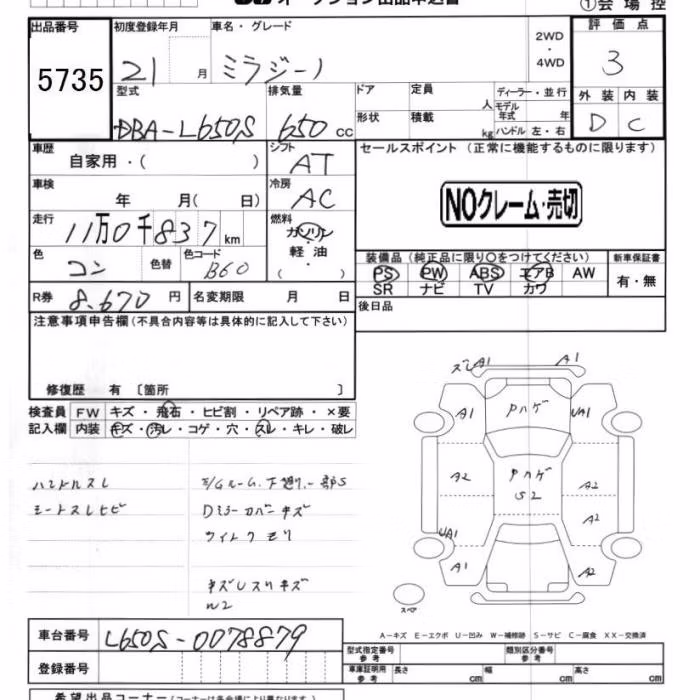 ①会場控
出品番号
5735
初度登録年月
21 月
車名・グレード
ミラジーノ
2WD
・
4WD
評価点
3
外装 内装
D C
型式
DBA-L650S
排気量
650 cc
ドア
形状
定員
人
積載
kg
ディーラー・並行
モデル
年式 年
ハンドル 左・右
車歴
自家用・( )
シフト
AT
セールスポイント(正常に機能するものに限ります)
NOクレーム・売切
車検
年 月( 日)
冷房
AC
走行
11万0千837km
燃料
ガソリン
軽油
( ・ )
色
コン
色替
色コード
B60
装備品(純正品に限り○をつけてください)
PS PW ABS エアB AW
SR ナビ TV カワ
新車保証書
有・無
R券 8,670 円
名変期限 月 日
後日品
注意事項申告欄(不具合内容等は具体的に記入して下さい)
修復歴 有〔箇所 〕
検査員
記入欄
FW キズ・飛石・ヒビ割・リペア跡・×要
内装 キズ・汚レ・コゲ・穴・スレ・キレ・破レ
ハンドルスレ
シートスレヒビ
Dミラーカバーキズ
ライトクモリ
キズレスリキズ
W2
ズレA1
A1
A1
Pハゲ
UA1
A2
Pハゲ
S2
A2
A2
UA1
A1
A2
スペア
A-キズ E-エクボ U-凹み W-補修跡 S-サビ C-腐食 XX-交換済
車台番号
L650S-0078879
登録番号
型式指定番号
参考
類別区分番号
参考
車庫証明用
参考
長さ cm
幅 cm
高さ cm
希望出品コーナー